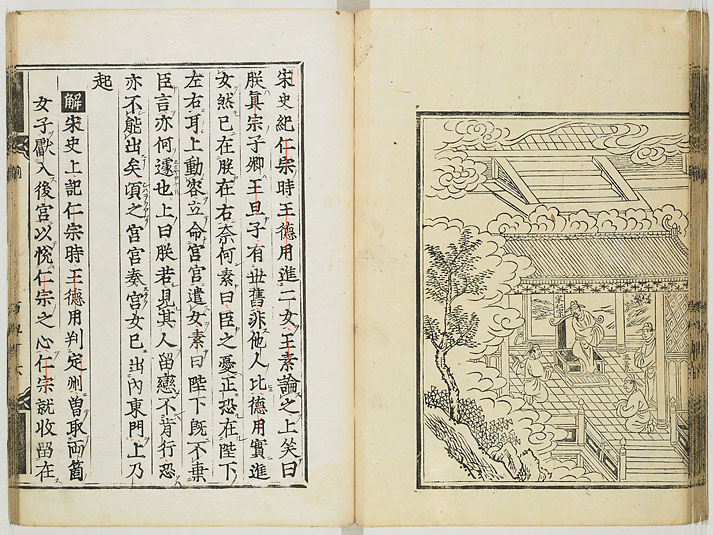 宋史紀仁宗時王德用進二女王素論之上笑曰
朕眞宗子卿王旦子有世舊非他人比德用實進
女然已在朕在右奈何素曰臣之憂正恐在陛下
左右耳上動容立命宮官遣女素曰陛下既不棄
臣言亦何遽也上曰朕若見其人留戀不肯行恐
亦不能出矣頃之宮官奏宮女已出內東門上乃
起
解宋史上記仁宗時王德用判定州曽取両箇
女子獻入後宮以悅仁宗之心仁宗就收留在